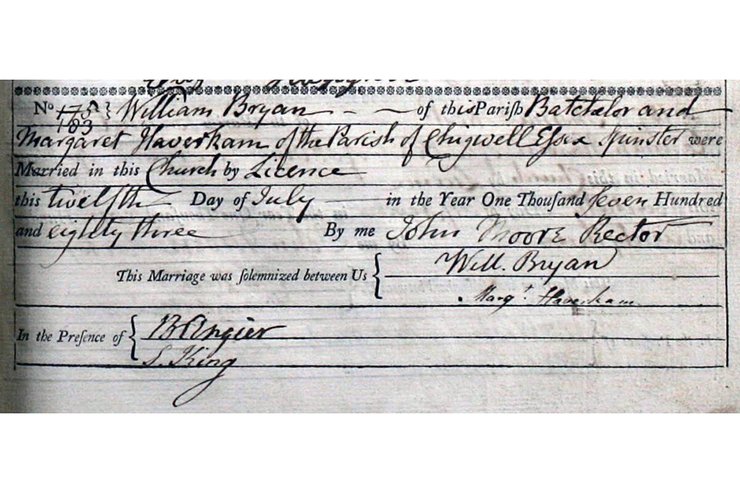 No. 175 } William Bryan — — of this Parish Batchelor and
1783
Margaret Haverkam of the Parish of Chigwell Essex Spinster were
Married in this Church by Licence
this twelfth Day of July — in the Year One Thousand Seven Hundred
and eighty three By me John Moore Rector
This Marriage was solemnized between Us { Will. Bryan
Margt. Haverkam
In the Presence of { B Angier
S. King